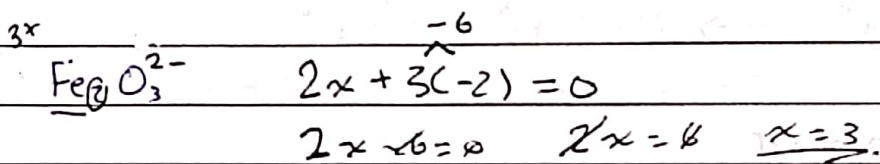 3x -6
Fe2 O3 2- 2x + 3(-2) = 0
2x -6 = 0 2x = 6 x = 3.